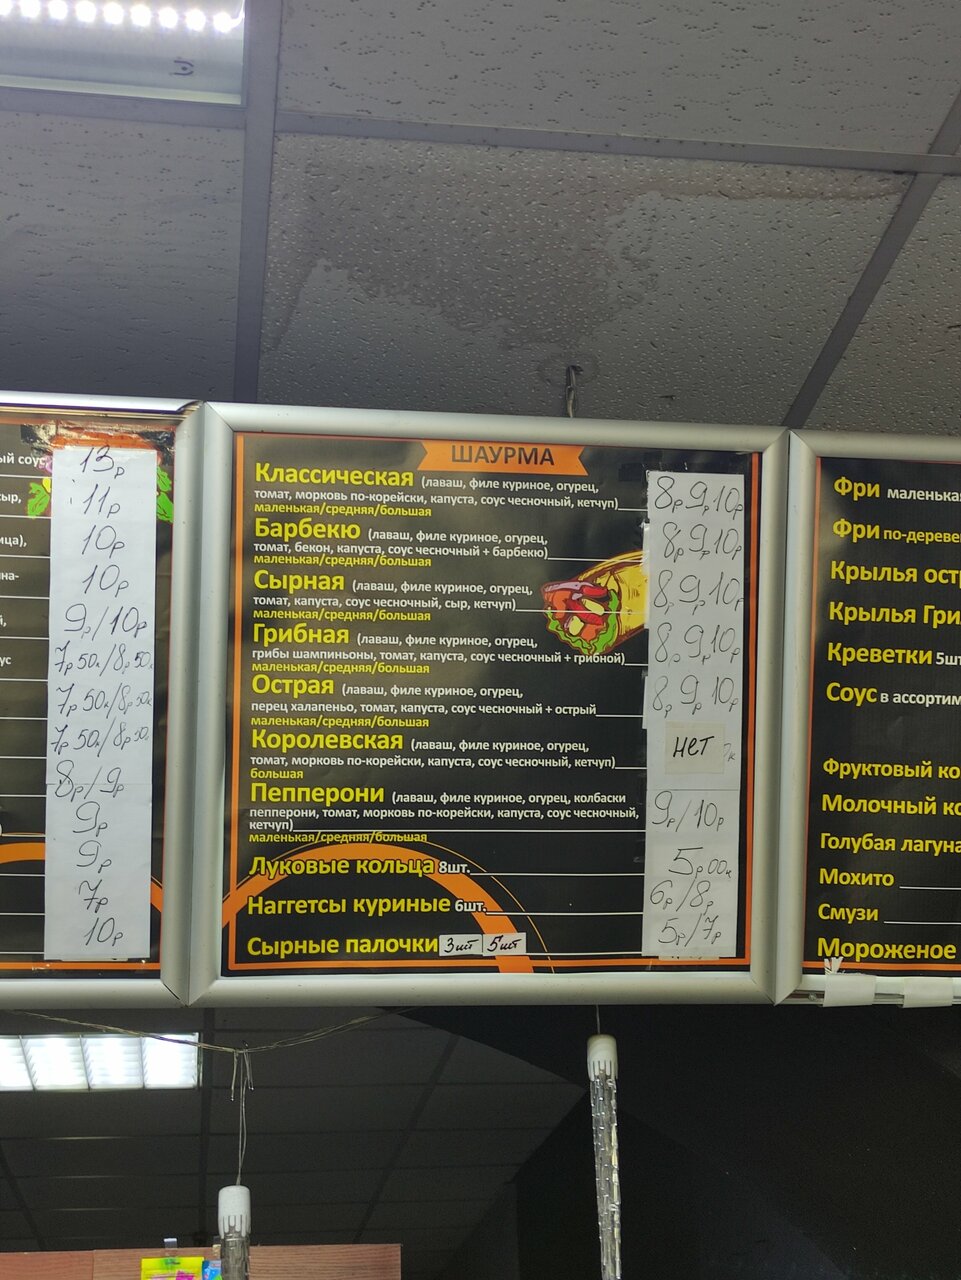 ый соус
13р
сыр,
11р
ица),
10р
10р
9р/10р
7р 50к/8р 50к
ус
7р 50к/8р 50к
7р 50к/8р 50к
8р/9р
9р
9р
7р
10р
ШАУРМА
Классическая (лаваш, филе куриное, огурец,
томат, морковь по-корейски, капуста, соус чесночный, кетчуп) 8р 9р 10р
маленькая/средняя/большая
Барбекю (лаваш, филе куриное, огурец,
томат, бекон, капуста, соус чесночный + барбекю) 8р 9р 10р
маленькая/средняя/большая
Сырная (лаваш, филе куриное, огурец,
томат, капуста, соус чесночный, сыр, кетчуп) 8р 9р 10р
маленькая/средняя/большая
Грибная (лаваш, филе куриное, огурец,
грибы шампиньоны, томат, капуста, соус чесночный + грибной) 8р 9р 10р
маленькая/средняя/большая
Острая (лаваш, филе куриное, огурец,
перец халапеньо, томат, капуста, соус чесночный + острый 8р 9р 10р
маленькая/средняя/большая
Королевская (лаваш, филе куриное, огурец,
томат, морковь по-корейски, капуста, соус чесночный, кетчуп) нет
большая
Пепперони (лаваш, филе куриное, огурец, колбаски
пепперони, томат, морковь по-корейски, капуста, соус чесночный,
кетчуп) 9р/10р
маленькая/средняя/большая
Луковые кольца 8шт. 5р 00к
Наггетсы куриные 6шт. 6р/8р
Сырные палочки 3шт 5шт 5р/7р
Фри маленькая
Фри по-дереве
Крылья ост
Крылья Гри
Креветки 5шт
Соус в ассортим
Фруктовый ко
Молочный ко
Голубая лагуна
Мохито
Смузи
Мороженое